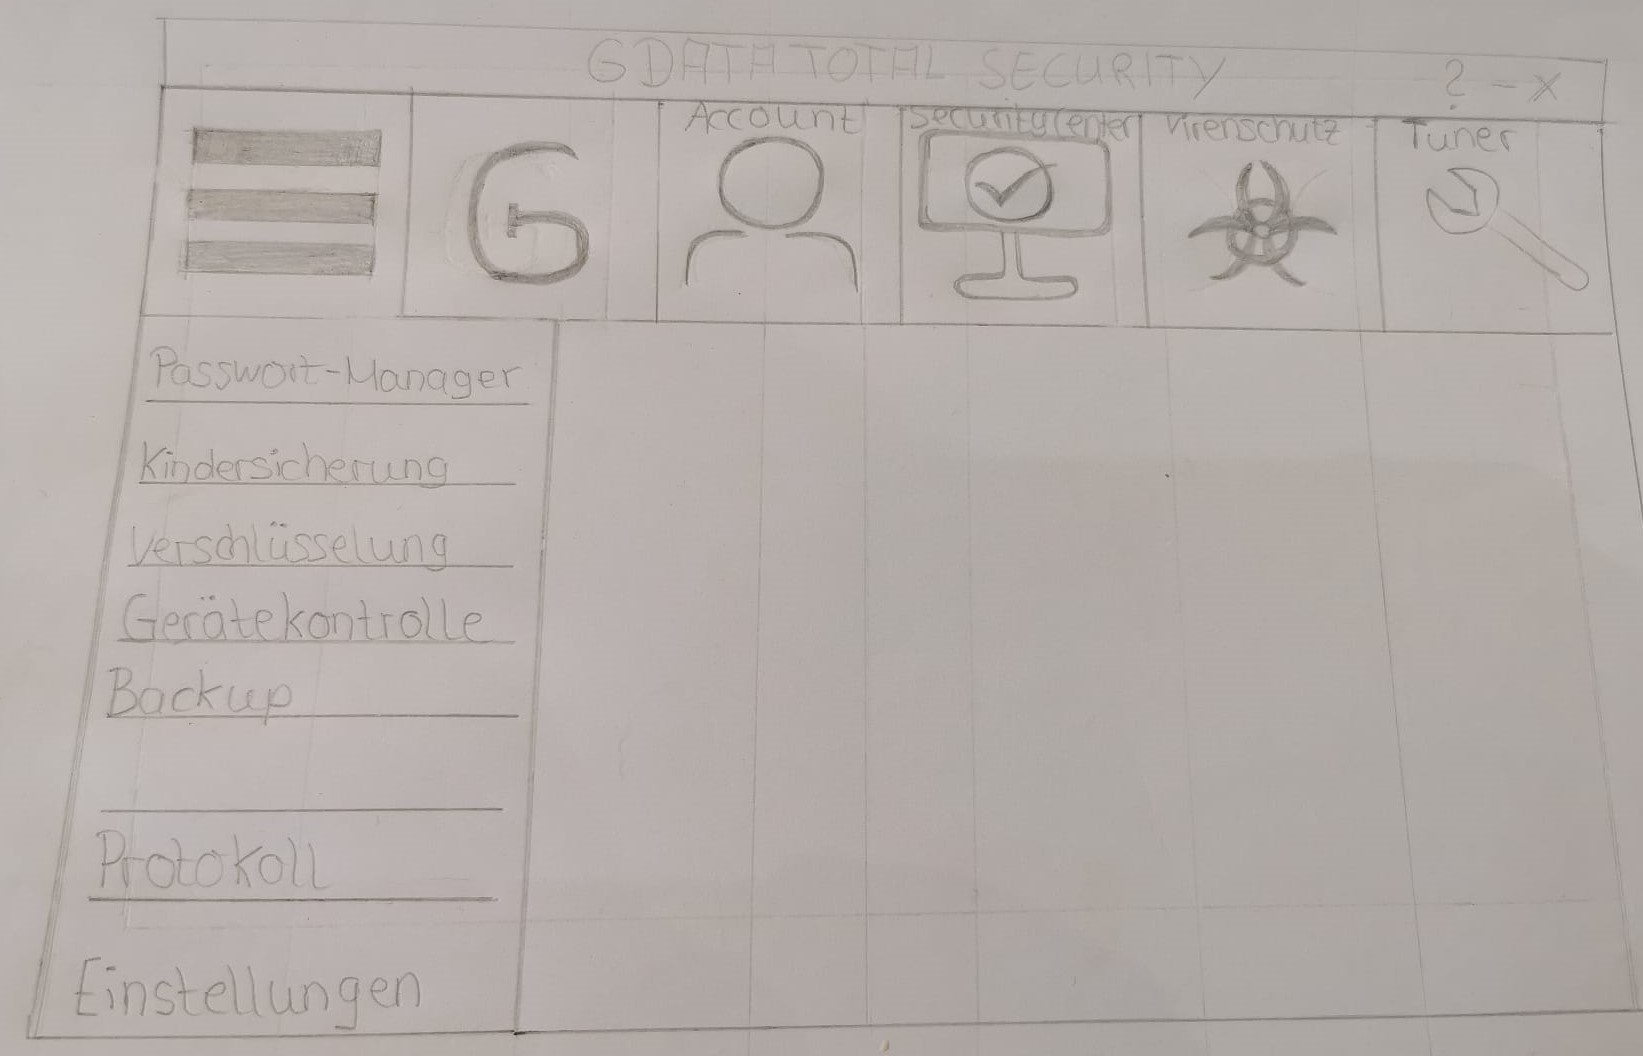 G DATA TOTAL SECURITY ? - X
Account SecurityCenter Virenschutz Tuner
G
Passwort-Manager
Kindersicherung
Verschlüsselung
Gerätekontrolle
Backup
Protokoll
Einstellungen